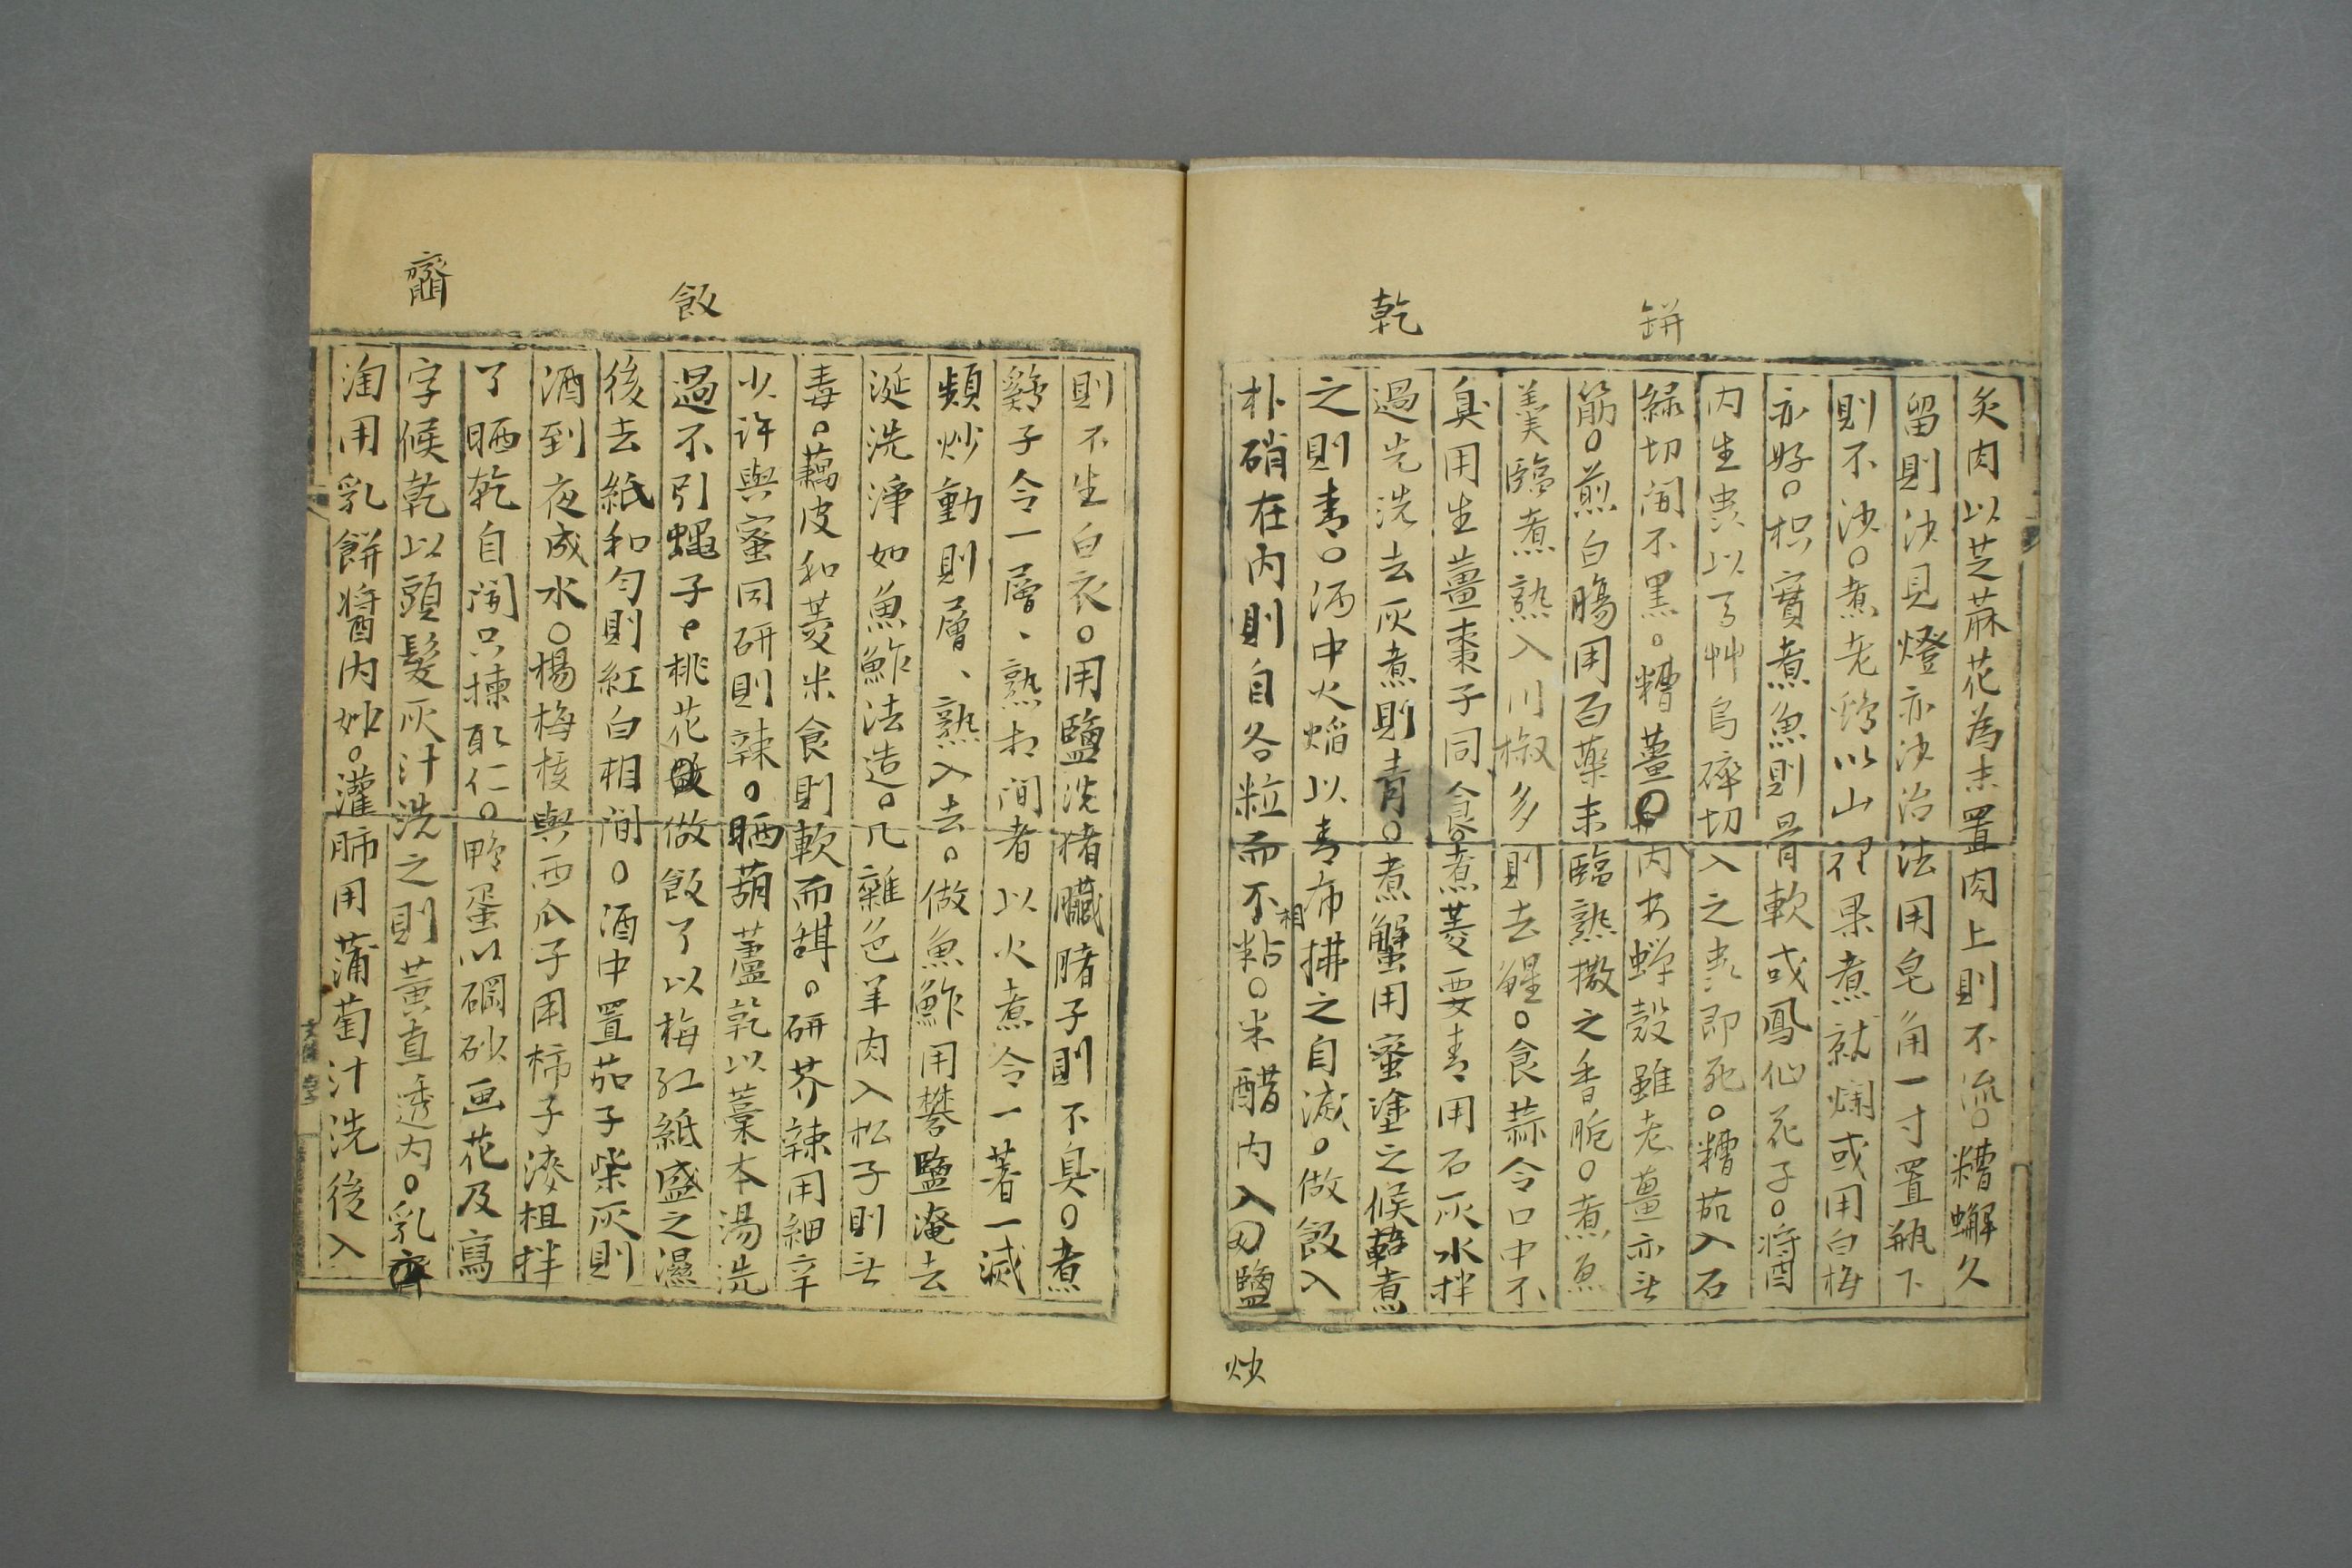 缾
乾
炙肉以芝蔴花為末置肉上則不流○糟蠏久
留則沙見燈亦沙治法用皂角一寸置瓶下
則不沙○煮老鵝以山裡果煮就爛或用白梅
亦好○枳實煮魚則骨軟或鳳仙花子○醬
内生虫以艸烏碎切入之虫即死○糟茄入石
緑切開不黑○糟薑内安蟬殼雖老薑亦無
筋○煎白腸用百藥末臨熟撒之香脆○煮魚
羹臨煮熟入川椒多則去腥○食蒜令口中不
臭用生薑棗子同食○煮菱要青用石灰水拌
過先洗去灰煮則青○煮蟹用蜜塗之候乾煮
之則青○酒中火焰以青布拂之自滅○做飯入
朴硝在内則自各粒而不相粘○米醋内入炒鹽
炒
飯
齏
則不生白衣○用鹽洗猪臟賭子則不臭○煮
鷄子令一層、熟相间者以火煮令一著一滅
頻炒動則層、熟入去○做魚鮓用礬鹽淹去
涎洗淨如魚鮓法造○凡雜色羊肉入松子則無
毒○藕皮和菱米食則軟而甜○研芥辣用細辛
少許與蜜同研則辣○晒葫蘆乾以藁本湯洗
過不引蠅子○桃花做飯了以梅紅紙盛之濕
後去紙和勻則紅白相间○酒中置茄子柴灰則
酒到夜成水○楊梅核與西瓜子用柿子漆柤拌
了晒乾自開只揀取仁○鴨蛋以碙砂画花及寫
字候乾以頭髮灰汁洗之則黄直透内○乳齏
淘用乳餅醬内妙○灌肺用蒲萄汁洗後入